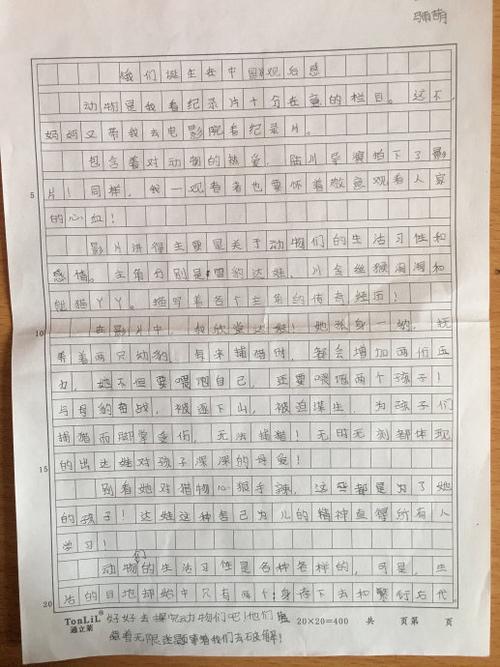 骊萌
《我们诞生在中国》观后感
动物是我看纪录片十分在意的栏目。这不,
妈妈又带我去电影院看纪录片。
包含着对动物的热爱,陆川导演拍下了影
片!同样,我一观看者也要怀着敬意观看人家
的心血!
影片讲得主要是关于动物们的生活习性和
感情。主角分别是:雪豹达娃、川金丝猴淘淘和
熊猫丫丫。描写着各个主角的传奇经历!
在影片中,我欣赏达娃!她孤身一豹,抚
养着两只幼豹。每来捕猎时,都会增加两份压
力,她不但要喂饱自己,还要喂饱两个孩子!
与母豹奋战,被逐下山,被迫谋生,为孩子们
捕猎而脚掌受伤,无法捕猎!无时无刻都体现
的出达娃对孩子深深的母爱!
别看她对猎物心狠手辣,这些都是为了她
的孩子!达娃这种舍己为儿的精神值得所有人
学习!
动物们的生活习性是各种各样的,可是,生
活的目地却始中只有两个:身存下去和繁衍后代
好好去探究动物们吧!他们
着无限迷题等着我们去破解!
5
10
15
20
TonLiL®
通立莱
20×20=400 共 页 第 页